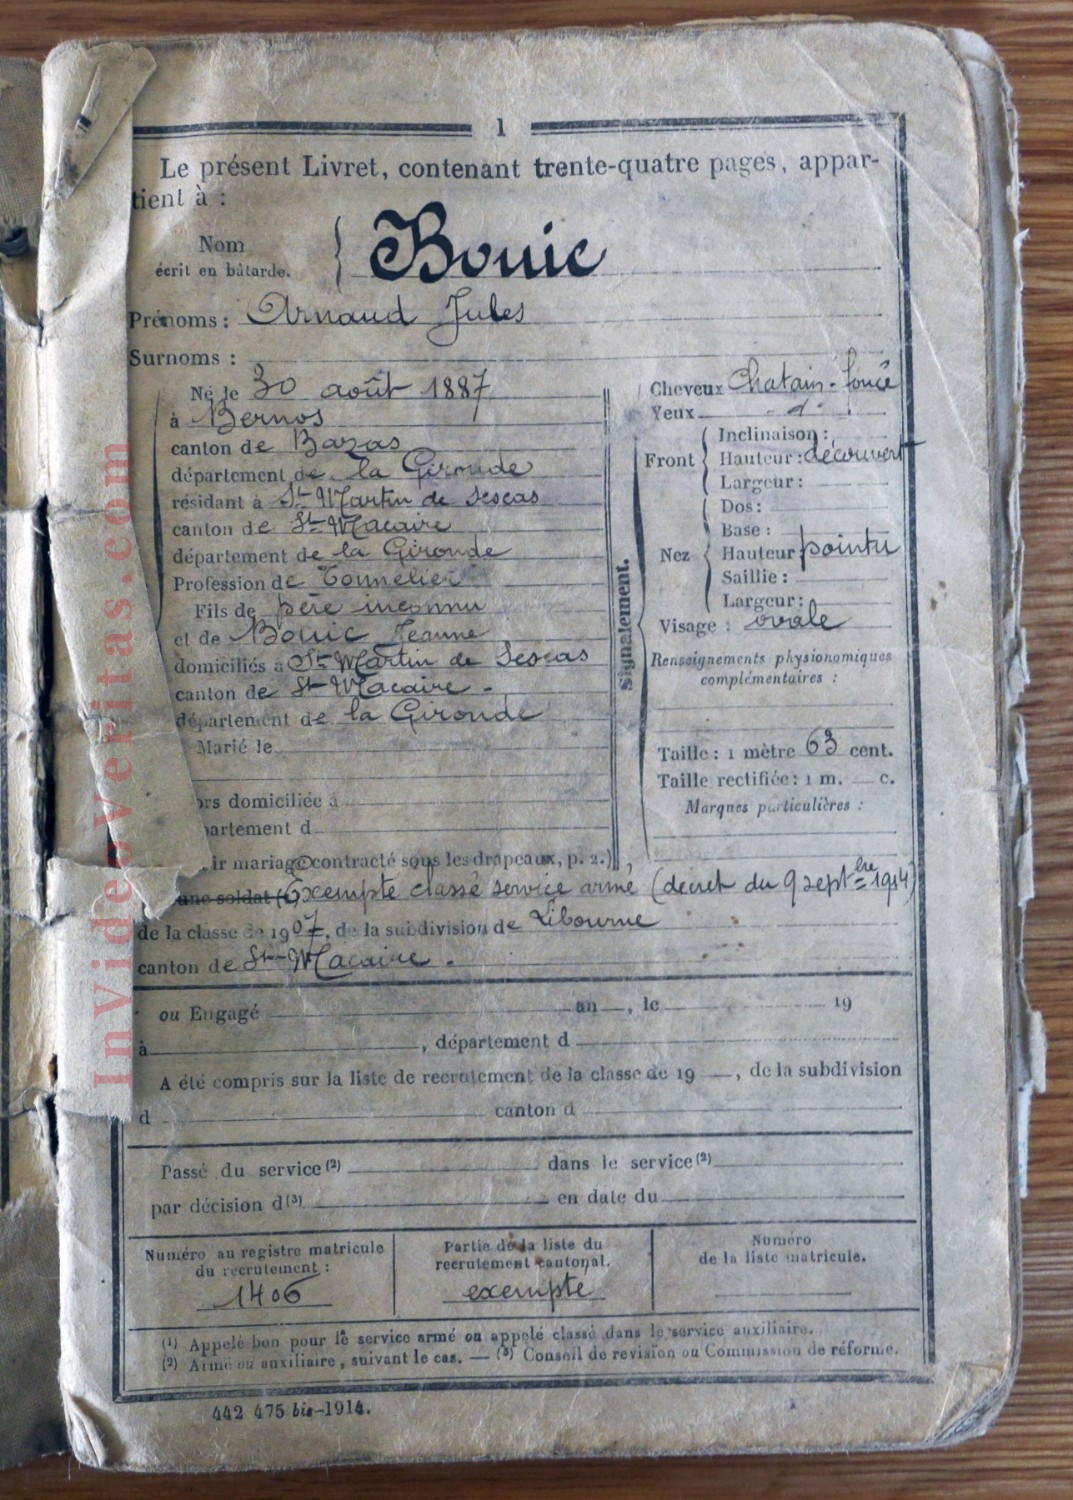 1
Le présent Livret, contenant trente-quatre pages, appar-
tient à :
Nom
écrit en bâtarde.
Bouic
Prénoms : Arnaud Jules
Surnoms :
Né le 30 août 1887
à Bernos
canton de Bazas
département de la Gironde
résidant à St Martin de Sescas
canton de St Macaire
département de la Gironde
Profession de Tonnelier
Fils de père inconnu
et de Bouic Jeanne
domiciliés à St Martin de Sescas
canton de St Macaire .
département de la Gironde
Marié le
ors domiciliée à
partement d
ir mariage contracté sous les drapeaux, p. 2.)
Signalement.
Cheveux Chatain-foncé
Yeux - d° -
Front
Inclinaison :
Hauteur : découvert
Largeur :
Nez
Dos :
Base :
Hauteur pointu
Saillie :
Largeur :
Visage : ovale
Renseignements physionomiques
complémentaires :
Taille : 1 mètre 63 cent.
Taille rectifiée : 1 m. — c.
Marques particulières :
une soldat (1) Exempté classé service armé (décret du 9 septbre 1914)
de la classe de 1907, de la subdivision de Libourne
canton de St-Macaire .
ou Engagé an , le 19
à , département d
A été compris sur la liste de recrutement de la classe de 19 —, de la subdivision
d canton d
Passé du service (2) dans le service (2)
par décision d (3) en date du
Numéro au registre matricule
du recrutement :
1406
Partie de la liste du
recrutement cantonal.
exempté
Numéro
de la liste matricule.
(1) Appelé bon pour le service armé ou appelé classé dans le service auxiliaire.
(2) Armé ou auxiliaire, suivant le cas. — (3) Conseil de revision ou Commission de réforme.
442 475 bis-1914.
InVideoVeritas.com